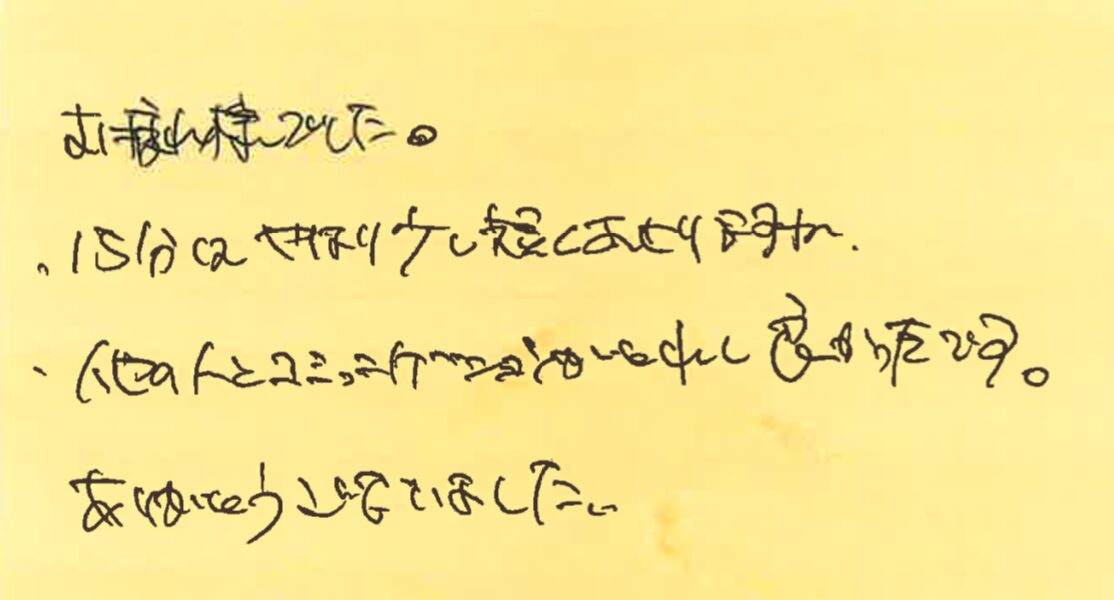 お疲れ様でした。
・15分はやはり少し短くあせりますね.
・他の人とコミュニケーションがとれて良かったです。
ありがとうございました。